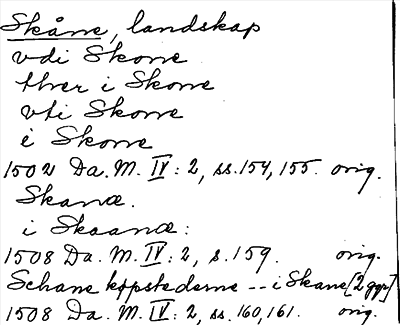 Skåne, landskap
vdi Skone
thver i Skone
vti Skone
i Skone
1502 Da. M. IV: 2, ss. 154, 155. orig.
Skanæ.
i Skaanæ:
1508 Da. M. IV: 2, s. 159. orig.
Schane køpstederne -- i Skane [2 ggr]
1508 Da. M. IV: 2, ss. 160, 161. orig.